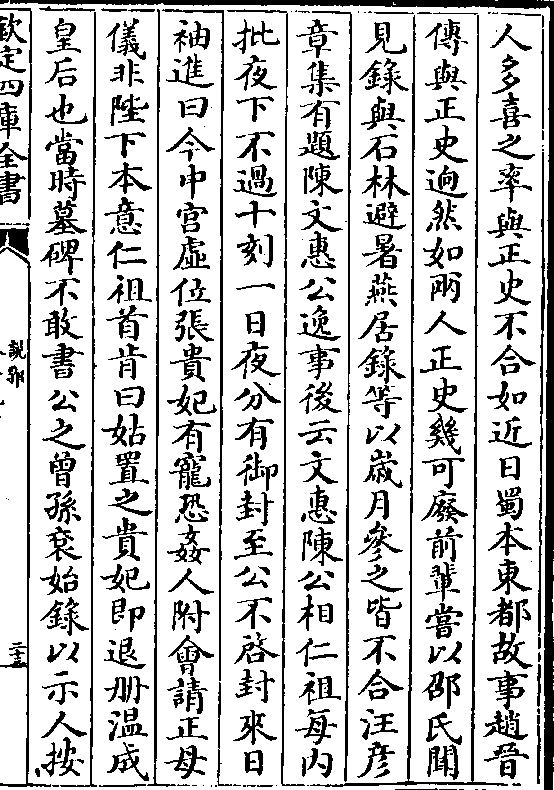 人多喜之率與正史不合如近日蜀本東都故事趙晉
傳與正史迥然如兩人正史幾可廢前輩嘗以邵氏聞
見錄與石林避暑燕居錄等以歲月參之皆不合汪彦
章集有題陳文惠公逸事後云文惠陳公相仁祖每内
批夜下不過十刻一日夜分有御封至公不啓封來日
袖進曰今中宮虛位張貴妃有寵恐姦人附會請正母
儀非陛下本意仁祖首肯曰姑置之貴妃即退册溫成
皇后也當時墓碑不敢書公之曾孫袞始錄以示人按
欽定四庫全書
說郛
二十五